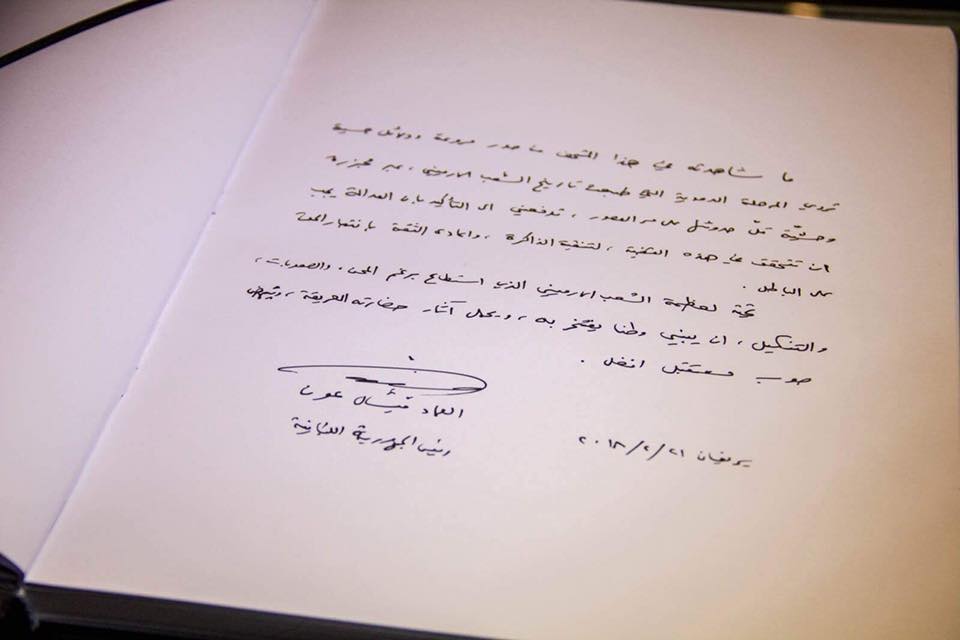 ما شاهدته في هذا المتحف من صور مروعة ودلائل حسية
تروي المرحلة الدموية التي طبعت تاريخ الشعب الارمني، عبر مجزرة
وحشيّة قلّ حدوثها على مر العصور، تدفعني الى التأكيد بان العدالة يجب
ان تتحقق في هذه القضية، لتنقية الذاكرة، واعادة الثقة بإنتصار الحق
على الباطل.
تحية لعظمة الشعب الارمني الذي استطاع برغم المحن، والصعوبات،
والتنكيل، ان يبني وطنا يفتخر به، ويحمل آثار حضارته العريقة، وينهض
صوب مستقبل افضل.
العماد ميشال عون
رئيس الجمهورية اللبنانية
يريفان ٢٠١٨/٢/٢١